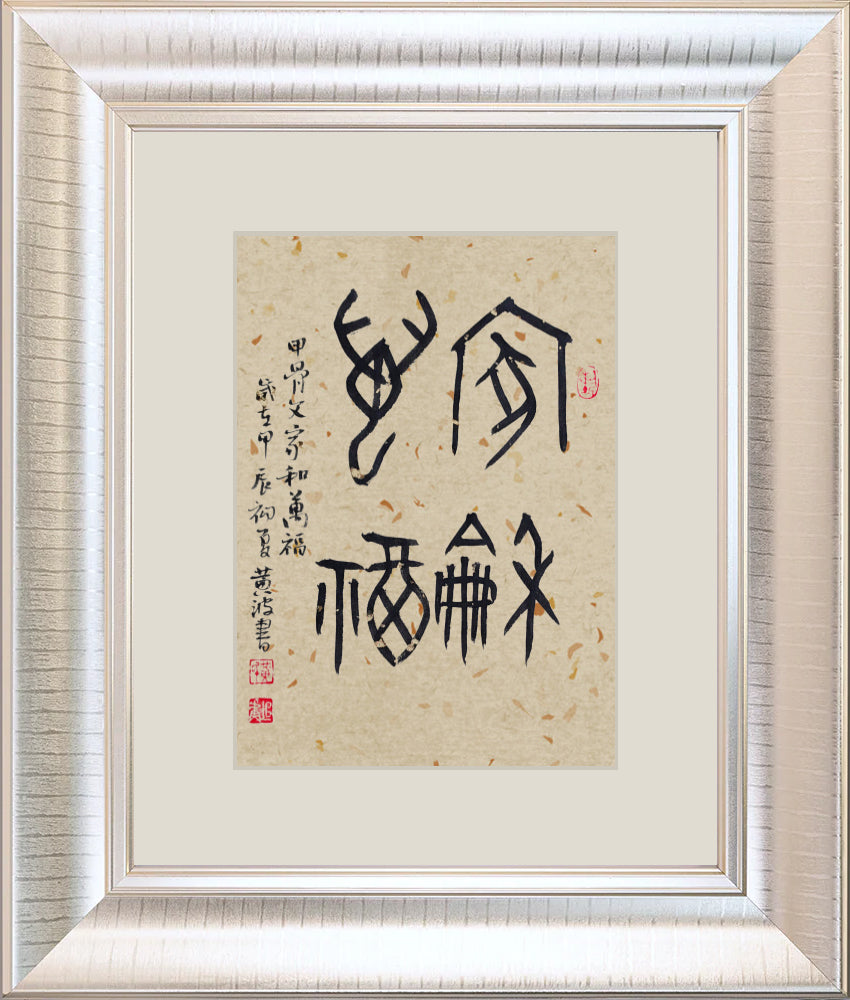 家龢
萬福
甲骨文家和萬福
歲在甲辰初夏黃波書